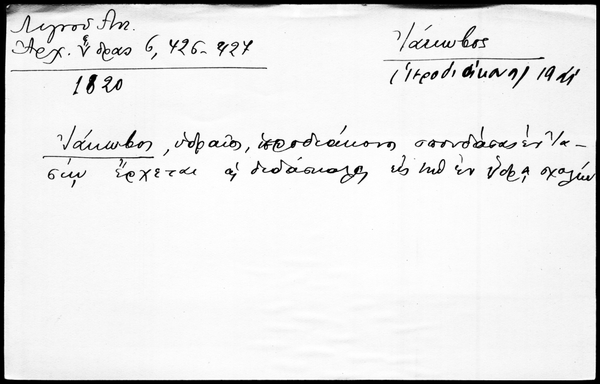 Λιγνοῦ Ἀν.
Ἀρχ. Ὕδρας 6, 426-427
1820
Ἰάκωβος
(ἱεροδιάκονος) 19
Ἰάκωβος, ὑδραῖος, ἱεροδιάκονος σπουδάσας ἐν Ἰα-
σίῳ, ἔρχεται ὡς διδάσκαλος εἰς τὴν ἐν Ὕδρᾳ σχολήν